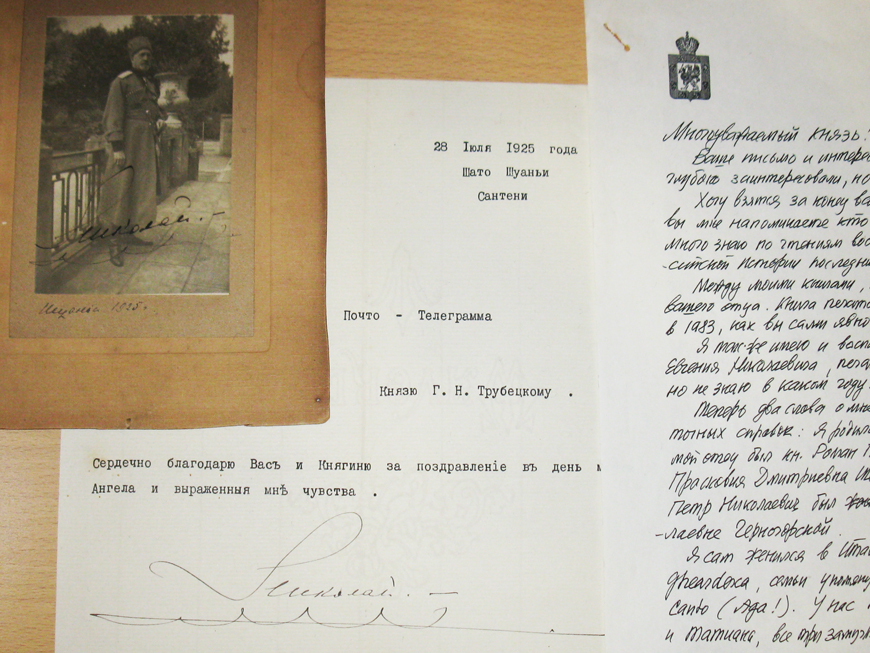 Николай.
1925 г.
28 Іюля 1925 года
Шато Шуаньи
Сантени
Почто - Телеграмма
Князю Г. Н. Трубецкому .
Сердечно благодарю Васъ и Княгиню за поздравленіе въ день м
Ангела и выраженныя мнѣ чувства .
Николай.
Многоуважаемый князь!
Ваше письмо и интерес
глубоко заинтересовали, но
Хочу взятся за концу ва
вы мне напоминаете кто
много знаю по чтениям вос
-сийской истории последни
Между моими книгами,
вашего отца. Книга
в 1983, как вы сами явно
Я так-же имею и восп
Евгения Николаевича, печа
но не знаю в каком году.
Теперь два слова о мне
точных справок: я родилс
мой отец был кн. Роман П
Прасковия Дмитриевна Ше
Петр Николаевич был
-лаевне Черногорской.
Я сам женился в Ита
gherardesca, семьи упомяну
Canto (Ада!). У нас
и Татиана, все три замуж